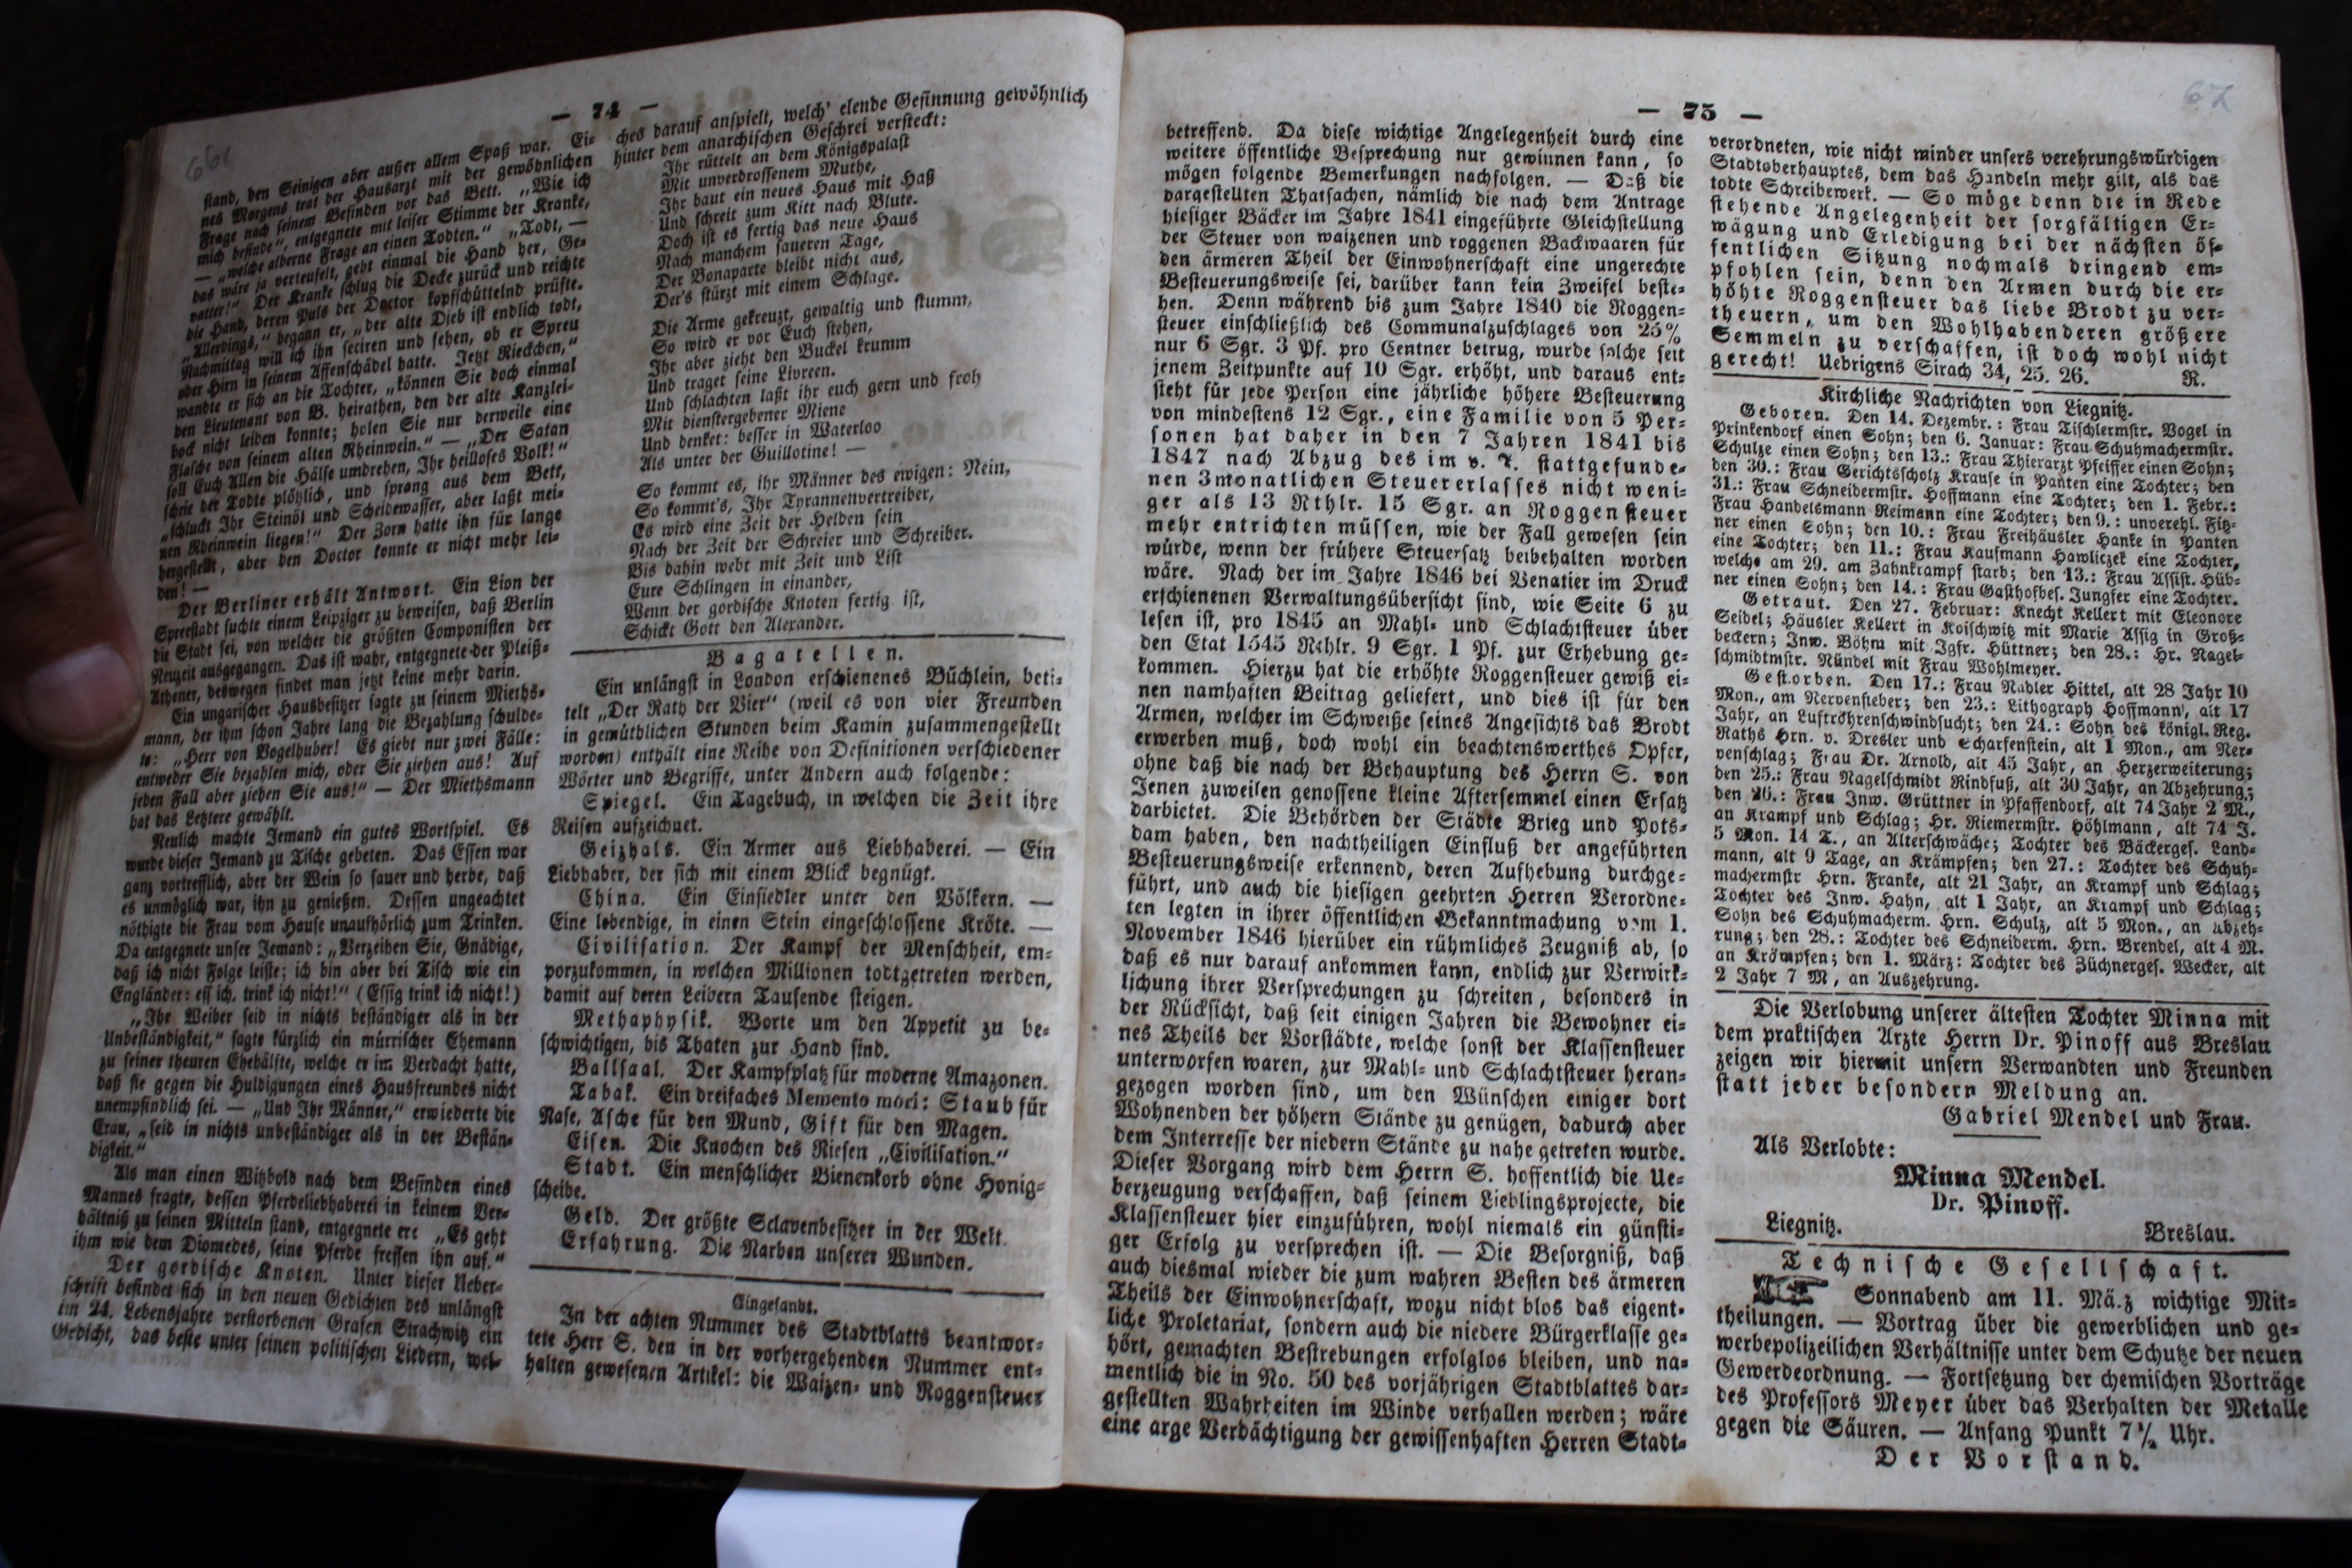 — 74 —
stand, den Seinigen aber außer allem Spaß war. Ei-
nes Morgens trat der Hausarzt mit der gewöhnlichen
Frage nach seinem Befinden vor das Bett. „Wie ich
mich befinde“, entgegnete mit leiser Stimme der Kranke,
— „welche alberne Frage an einen Todten.“ „Todt, —
das wäre ja verteufelt, gebt einmal die Hand her, Ge-
vatter!“ Der Kranke schlug die Decke zurück und reichte
die Hand, deren Puls der Doctor kopfschüttelnd prüfte.
„Allerdings,“ begann er, „der alte Dieb ist endlich todt,
Nachmittag will ich ihn seciren und sehen, ob er Spreu
oder Hirn in seinem Affenschädel hatte. Jetzt Rieckchen,“
wandte er sich an die Tochter, „können Sie doch einmal
den Lieutenant von B. heirathen, den der alte Kanzlei-
bock nicht leiden konnte; holen Sie nur derweile eine
Flasche von seinem alten Rheinwein.“ — „Der Satan
soll Euch Allen die Hälse umdrehen, Ihr heilloses Volk!“
schrie der Todte plötzlich, und sprang aus dem Bett,
„schluckt Ihr Steinöl und Scheidewasser, aber laßt mei-
nen Rheinwein liegen!“ Der Zorn hatte ihn für lange
hergestellt, aber den Doctor konnte er nicht mehr lei-
den! —
Der Berliner erhält Antwort. Ein Lion der
Spreestadt suchte einem Leipziger zu beweisen, daß Berlin
die Stadt sei, von welcher die größten Componisten der
Neuzeit ausgegangen. Das ist wahr, entgegnete der Pleiß-
Athener, deswegen findet man jetzt keine mehr darin.
Ein ungarischer Hausbesitzer sagte zu seinem Mieths-
mann, der ihm schon Jahre lang die Bezahlung schulde-
te: „Herr von Vogelhuber! Es giebt nur zwei Fälle:
entweder Sie bezahlen mich, oder Sie ziehen aus! Auf
jeden Fall aber ziehen Sie aus!“ — Der Miethsmann
hat das Letztere gewählt.
Neulich machte Jemand ein gutes Wortspiel. Es
wurde dieser Jemand zu Tische gebeten. Das Essen war
ganz vortrefflich, aber der Wein so sauer und herbe, daß
es unmöglich war, ihn zu genießen. Dessen ungeachtet
nöthigte die Frau vom Hause unaufhörlich zum Trinken.
Da entgegnete unser Jemand: „Verzeihen Sie, Gnädige,
daß ich nicht Folge leiste; ich bin aber bei Tisch wie ein
Engländer: ess ich, trink ich nicht!“ (Essig trink ich nicht!)
„Ihr Weiber seid in nichts beständiger als in der
Unbeständigkeit,“ sagte kürzlich ein mürrischer Ehemann
zu seiner theuren Ehehälfte, welche er im Verdacht hatte,
daß sie gegen die Huldigungen eines Hausfreundes nicht
unempfindlich sei. — „Und Ihr Männer,“ erwiederte die
Frau, „seid in nichts unbeständiger als in der Bestän-
digkeit.“
Als man einen Witzbold nach dem Befinden eines
Mannes fragte, dessen Pferdeliebhaberei in keinem Ver-
hältniß zu seinen Mitteln stand, entgegnete er: „Es geht
ihm wie dem Diomedes, seine Pferde fressen ihn auf.“
Der gordische Knoten. Unter dieser Ueber-
schrift befindet sich in den neuen Gedichten des unlängst
im 24. Lebensjahre verstorbenen Grafen Strachwitz ein
Gedicht, das beste unter seinen politischen Liedern, wel-
ches darauf anspielt, welch' elende Gesinnung gewöhnlich
hinter dem anarchischen Geschrei versteckt:
Ihr rüttelt an dem Königspalast
Mit unverdrossenem Muthe,
Ihr baut ein neues Haus mit Haß
Und schreit zum Kitt nach Blute.
Doch ist es fertig das neue Haus
Nach manchem saueren Tage,
Der Bonaparte bleibt nicht aus,
Der's stürzt mit einem Schlage.
Die Arme gekreuzt, gewaltig und stumm,
So wird er vor Euch stehen,
Ihr aber zieht den Buckel krumm
Und traget seine Livreen.
Und schlachten laßt ihr euch gern und froh
Mit dienstergebener Miene
Und denket: besser in Waterloo
Als unter der Guillotine! —
So kommt es, ihr Männer des ewigen: Nein,
So kommt's, Ihr Tyrannenvertreiber,
Es wird eine Zeit der Helden sein
Nach der Zeit der Schreier und Schreiber.
Bis dahin webt mit Zeit und List
Eure Schlingen in einander,
Wenn der gordische Knoten fertig ist,
Schickt Gott den Alexander.
Bagatellen.
Ein unlängst in London erschienenes Büchlein, beti-
telt „Der Rath der Vier“ (weil es von vier Freunden
in gemüthlichen Stunden beim Kamin zusammengestellt
worden) enthält eine Reihe von Definitionen verschiedener
Wörter und Begriffe, unter Andern auch folgende:
Spiegel. Ein Tagebuch, in welchen die Zeit ihre
Reisen aufzeichnet.
Geizhals. Ein Armer aus Liebhaberei. — Ein
Liebhaber, der sich mit einem Blick begnügt.
China. Ein Einsiedler unter den Völkern. —
Eine lebendige, in einen Stein eingeschlossene Kröte. —
Civilisation. Der Kampf der Menschheit, em-
porzukommen, in welchen Millionen todtgetreten werden,
damit auf deren Leibern Tausende steigen.
Methaphysik. Worte um den Appetit zu be-
schwichtigen, bis Thaten zur Hand sind.
Ballsaal. Der Kampfplatz für moderne Amazonen.
Tabak. Ein dreifaches Memento mori: Staub für
Nase, Asche für den Mund, Gift für den Magen.
Eisen. Die Knochen des Riesen „Civilisation.“
Stadt. Ein menschlicher Bienenkorb ohne Honig-
scheibe.
Geld. Der größte Sclavenbesitzer in der Welt.
Erfahrung. Die Narben unserer Wunden.
Eingesandt.
In der achten Nummer des Stadtblatts beantwor-
tete Herr S. den in der vorhergehenden Nummer ent-
halten gewesenen Artikel: die Waizen- und Roggensteuer
— 75 —
67
betreffend. Da diese wichtige Angelegenheit durch eine
weitere öffentliche Besprechung nur gewinnen kann, so
mögen folgende Bemerkungen nachfolgen. — Daß die
dargestellten Thatsachen, nämlich die nach dem Antrage
hiesiger Bäcker im Jahre 1841 eingeführte Gleichstellung
der Steuer von waizenen und roggenen Backwaaren für
den ärmeren Theil der Einwohnerschaft eine ungerechte
Besteuerungsweise sei, darüber kann kein Zweifel beste-
hen. Denn während bis zum Jahre 1840 die Roggen-
steuer einschließlich des Communalzuschlages von 25%
nur 6 Sgr. 3 Pf. pro Centner betrug, wurde solche seit
jenem Zeitpunkte auf 10 Sgr. erhöht, und daraus ent-
steht für jede Person eine jährliche höhere Besteuerung
von mindestens 12 Sgr., eine Familie von 5 Per-
sonen hat daher in den 7 Jahren 1841 bis
1847 nach Abzug des im v. J. stattgefunde-
nen 3monatlichen Steuererlasses nicht weni-
ger als 13 Rthlr. 15 Sgr. an Roggensteuer
mehr entrichten müssen, wie der Fall gewesen sein
würde, wenn der frühere Steuersatz beibehalten worden
wäre. Nach der im Jahre 1846 bei Venatier im Druck
erschienenen Verwaltungsübersicht sind, wie Seite 6 zu
lesen ist, pro 1845 an Mahl- und Schlachtsteuer über
den Etat 1545 Rthlr. 9 Sgr. 1 Pf. zur Erhebung ge-
kommen. Hierzu hat die erhöhte Roggensteuer gewiß ei-
nen namhaften Beitrag geliefert, und dies ist für den
Armen, welcher im Schweiße seines Angesichts das Brodt
erwerben muß, doch wohl ein beachtenswerthes Opfer,
ohne daß die nach der Behauptung des Herrn S. von
Jenen zuweilen genossene kleine Aftersemmel einen Ersatz
darbietet. Die Behörden der Städte Brieg und Pots-
dam haben, den nachtheiligen Einfluß der angeführten
Besteuerungsweise erkennend, deren Aufhebung durchge-
führt, und auch die hiesigen geehrten Herren Verordne-
ten legten in ihrer öffentlichen Bekanntmachung vom 1.
November 1846 hierüber ein rühmliches Zeugniß ab, so
daß es nur darauf ankommen kann, endlich zur Verwirk-
lichung ihrer Versprechungen zu schreiten, besonders in
der Rücksicht, daß seit einigen Jahren die Bewohner ei-
nes Theils der Vorstädte, welche sonst der Klassensteuer
unterworfen waren, zur Mahl- und Schlachtsteuer heran-
gezogen worden sind, um den Wünschen einiger dort
Wohnenden der höhern Stände zu genügen, dadurch aber
dem Interresse der niedern Stände zu nahe getreten wurde.
Dieser Vorgang wird dem Herrn S. hoffentlich die Ue-
berzeugung verschaffen, daß seinem Lieblingsprojecte, die
Klassensteuer hier einzuführen, wohl niemals ein günsti-
ger Erfolg zu versprechen ist. — Die Besorgniß, daß
auch diesmal wieder die zum wahren Besten des ärmeren
Theils der Einwohnerschaft, wozu nicht blos das eigent-
liche Proletariat, sondern auch die niedere Bürgerklasse ge-
hört, gemachten Bestrebungen erfolglos bleiben, und na-
mentlich die in No. 50 des vorjährigen Stadtblattes dar-
gestellten Wahrheiten im Winde verhallen werden; wäre
eine arge Verdächtigung der gewissenhaften Herren Stadt-
verordneten, wie nicht minder unsers verehrungswürdigen
Stadtoberhauptes, dem das Handeln mehr gilt, als das
todte Schreibewerk. — So möge denn die in Rede
stehende Angelegenheit der sorgfältigen Er-
wägung und Erledigung bei der nächsten öf-
fentlichen Sitzung nochmals dringend em-
pfohlen sein, denn den Armen durch die er-
höhte Roggensteuer das liebe Brodt zu ver-
theuern, um den Wohlhabenderen größere
Semmeln zu verschaffen, ist doch wohl nicht
gerecht! Uebrigens Sirach 34, 25. 26. R.
Kirchliche Nachrichten von Liegnitz.
Geboren. Den 14. Dezembr.: Frau Tischlermstr. Vogel in
Prinkendorf einen Sohn; den 6. Januar: Frau Schuhmachermstr.
Schulze einen Sohn; den 13.: Frau Thierarzt Pfeiffer einen Sohn;
den 30.: Frau Gerichtsscholz Krause in Panten eine Tochter; den
31.: Frau Schneidermstr. Hoffmann eine Tochter; den 1. Febr.:
Frau Handelsmann Reimann eine Tochter; den 9.: unverehl. Fitz-
ner einen Sohn; den 10.: Frau Freihäusler Hanke in Panten
eine Tochter; den 11.: Frau Kaufmann Hawliczek eine Tochter,
welche am 29. am Zahnkrampf starb; den 13.: Frau Assist. Hüb-
ner einen Sohn; den 14.: Frau Gasthofbes. Jungfer eine Tochter.
Getraut. Den 27. Februar: Knecht Kellert mit Eleonore
Seidel; Häusler Kellert in Koischwitz mit Marie Assig in Groß-
beckern; Inw. Böhm mit Igfr. Hüttner; den 28.: Hr. Nagel-
schmidtmstr. Nündel mit Frau Wohlmeyer.
Gestorben. Den 17.: Frau Nadler Hittel, alt 28 Jahr 10
Mon., am Nervenfieber; den 23.: Lithograph Hoffmann, alt 17
Jahr, an Luftröhrenschwindsucht; den 24.: Sohn des königl. Reg.
Raths Hrn. v. Dresler und Scharfenstein, alt 1 Mon., am Ner-
venschlag; Frau Dr. Arnold, alt 45 Jahr, an Herzerweiterung;
den 25.: Frau Nagelschmidt Rindfuß, alt 30 Jahr, an Abzehrung;
den 26.: Frau Inw. Grüttner in Pfaffendorf, alt 74 Jahr 2 M.,
an Krampf und Schlag; Hr. Riemermstr. Höhlmann, alt 74 J.
5 Mon. 14 T., an Alterschwäche; Tochter des Bäckerges. Land-
mann, alt 9 Tage, an Krämpfen; den 27.: Tochter des Schuh-
machermstr Hrn. Franke, alt 21 Jahr, an Krampf und Schlag;
Tochter des Inw. Hahn, alt 1 Jahr, an Krampf und Schlag;
Sohn des Schuhmacherm. Hrn. Schulz, alt 5 Mon., an Abzeh-
rung; den 28.: Tochter des Schneiderm. Hrn. Brendel, alt 4 M.
an Krämpfen; den 1. März: Tochter des Züchnerges. Wecker, alt
2 Jahr 7 M, an Auszehrung.
Die Verlobung unserer ältesten Tochter Minna mit
dem praktischen Arzte Herrn Dr. Pinoff aus Breslau
zeigen wir hiermit unsern Verwandten und Freunden
statt jeder besondern Meldung an.
Gabriel Mendel und Frau.
Als Verlobte:
Minna Mendel.
Dr. Pinoff.
Liegnitz. Breslau.
Technische Gesellschaft.
Sonnabend am 11. März wichtige Mit-
theilungen. — Vortrag über die gewerblichen und ge-
werbepolizeilichen Verhältnisse unter dem Schutze der neuen
Gewerdeordnung. — Fortsetzung der chemischen Vorträge
des Professors Meyer über das Verhalten der Metalle
gegen die Säuren. — Anfang Punkt 7½ Uhr.
Der Vorstand.